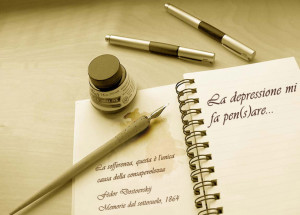 La depressione mi
fa pen(s)are...
La sofferenza, questa è l'unica
causa della consapevolezza
Fëdor Dostoevskij
Memorie dal sottosuolo, 1864